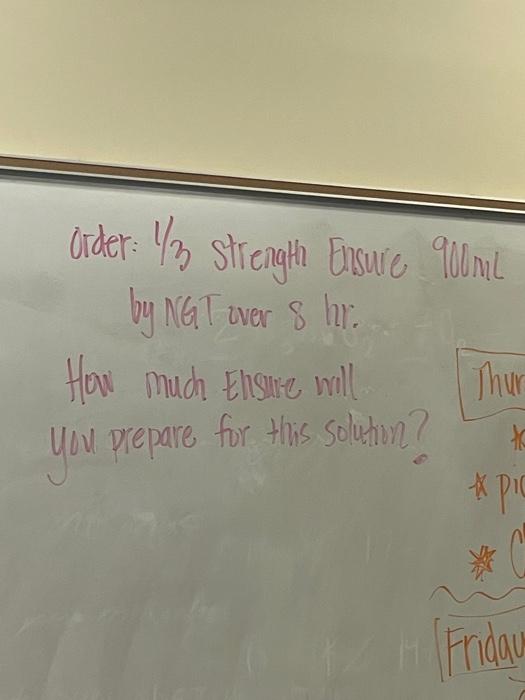 Order: 1/3 Strength Ensure 900mL
by NGT over 8 hr.
How much Ensure will
you prepare for this solution?
Thur
* pi
* C
Friday